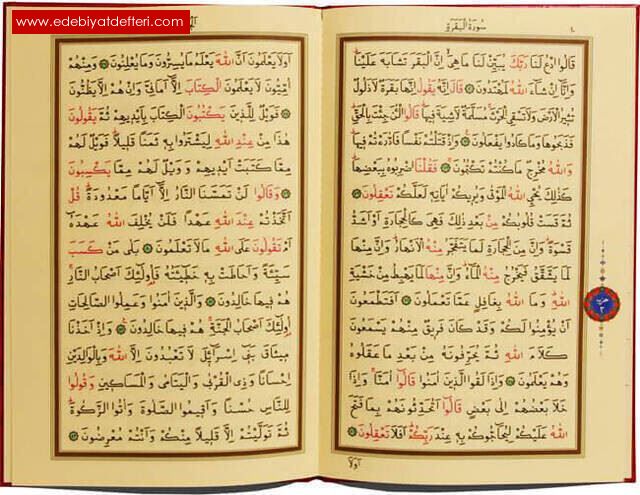 www.edebiyatdefteri.com
سورة البقرة
قَالُوا ادْعُ لَنَا رَبَّكَ يُبَيِّنْ لَنَا مَا هِيَ اِنَّ الْبَقَرَ تَشَابَهَ عَلَيْنَا
وَاِنَّا اِنْ شَاءَ اللهُ لَمُهْتَدُونَ قَالَ اِنَّهُ يَقُولُ اِنَّهَا بَقَرَةٌ لَا ذَلُولٌ
تُثِيرُ الْاَرْضَ وَلَا تَسْقِي الْحَرْثَ مُسَلَّمَةٌ لَا شِيَةَ فِيهَا قَالُوا الْـٰٔنَ جِئْتَ بِالْحَقِّ
فَذَبَحُوهَا وَمَا كَادُوا يَفْعَلُونَ وَاِذْ قَتَلْتُمْ نَفْسًا فَادَّارَءْتُمْ فِيهَا
وَاللهُ مُخْرِجٌ مَا كُنْتُمْ تَكْتُمُونَ فَقُلْنَا اضْرِبُوهُ بِبَعْضِهَا
كَذٰلِكَ يُحْيِ اللهُ الْمَوْتٰى وَيُرِيكُمْ اٰيَاتِهِ لَعَلَّكُمْ تَعْقِلُونَ
ثُمَّ قَسَتْ قُلُوبُكُمْ مِنْ بَعْدِ ذٰلِكَ فَهِيَ كَالْحِجَارَةِ اَوْ اَشَدُّ
قَسْوَةً وَاِنَّ مِنَ الْحِجَارَةِ لَمَا يَتَفَجَّرُ مِنْهُ الْاَنْهَارُ وَاِنَّ مِنْهَا
لَمَا يَشَّقَّقُ فَيَخْرُجُ مِنْهُ الْمَاءُ وَاِنَّ مِنْهَا لَمَا يَهْبِطُ مِنْ خَشْيَةِ
اللهِ وَمَا اللهُ بِغَافِلٍ عَمَّا تَعْمَلُونَ اَفَتَطْمَعُونَ
اَنْ يُؤْمِنُوا لَكُمْ وَقَدْ كَانَ فَرِيقٌ مِنْهُمْ يَسْمَعُونَ
كَلَامَ اللهِ ثُمَّ يُحَرِّفُونَهُ مِنْ بَعْدِ مَا عَقَلُوهُ
وَهُمْ يَعْلَمُونَ وَاِذَا لَقُوا الَّذِينَ اٰمَنُوا قَالُوا اٰمَنَّا وَاِذَا
خَلَا بَعْضُهُمْ اِلٰى بَعْضٍ قَالُوا اَتُحَدِّثُونَهُمْ بِمَا فَتَحَ
اللهُ عَلَيْكُمْ لِيُحَاجُّوكُمْ بِهِ عِنْدَ رَبِّكُمْ اَفَلَا تَعْقِلُونَ
اَوَلَا
اَوَلَا يَعْلَمُونَ اَنَّ اللهَ يَعْلَمُ مَا يُسِرُّونَ وَمَا يُعْلِنُونَ وَمِنْهُمْ
اُمِّيُّونَ لَا يَعْلَمُونَ الْكِتَابَ اِلَّا اَمَانِيَّ وَاِنْ هُمْ اِلَّا يَظُنُّونَ
فَوَيْلٌ لِلَّذِينَ يَكْتُبُونَ الْكِتَابَ بِاَيْدِيهِمْ ثُمَّ يَقُولُونَ
هٰذَا مِنْ عِنْدِ اللهِ لِيَشْتَرُوا بِهِ ثَمَنًا قَلِيلًا فَوَيْلٌ لَهُمْ
مِمَّا كَتَبَتْ اَيْدِيهِمْ وَوَيْلٌ لَهُمْ مِمَّا يَكْسِبُونَ
وَقَالُوا لَنْ تَمَسَّنَا النَّارُ اِلَّا اَيَّامًا مَعْدُودَةً قُلْ
اَتَّخَذْتُمْ عِنْدَ اللهِ عَهْدًا فَلَنْ يُخْلِفَ اللهُ عَهْدَهُ
اَمْ تَقُولُونَ عَلَى اللهِ مَا لَا تَعْلَمُونَ بَلٰى مَنْ كَسَبَ
سَيِّئَةً وَاَحَاطَتْ بِهِ خَطِيـَٔتُهُ فَاُولٰئِكَ اَصْحَابُ النَّارِ
هُمْ فِيهَا خَالِدُونَ وَالَّذِينَ اٰمَنُوا وَعَمِلُوا الصَّالِحَاتِ
اُولٰئِكَ اَصْحَابُ الْجَنَّةِ هُمْ فِيهَا خَالِدُونَ وَاِذْ اَخَذْنَا
مِيثَاقَ بَنِي اِسْرَائِلَ لَا تَعْبُدُونَ اِلَّا اللهَ وَبِالْوَالِدَيْنِ
اِحْسَانًا وَذِي الْقُرْبٰى وَالْيَتَامٰى وَالْمَسَاكِينِ وَقُولُوا
لِلنَّاسِ حُسْنًا وَاَقِيمُوا الصَّلٰوةَ وَاٰتُوا الزَّكٰوةَ
ثُمَّ تَوَلَّيْتُمْ اِلَّا قَلِيلًا مِنْكُمْ وَاَنْتُمْ مُعْرِضُونَ